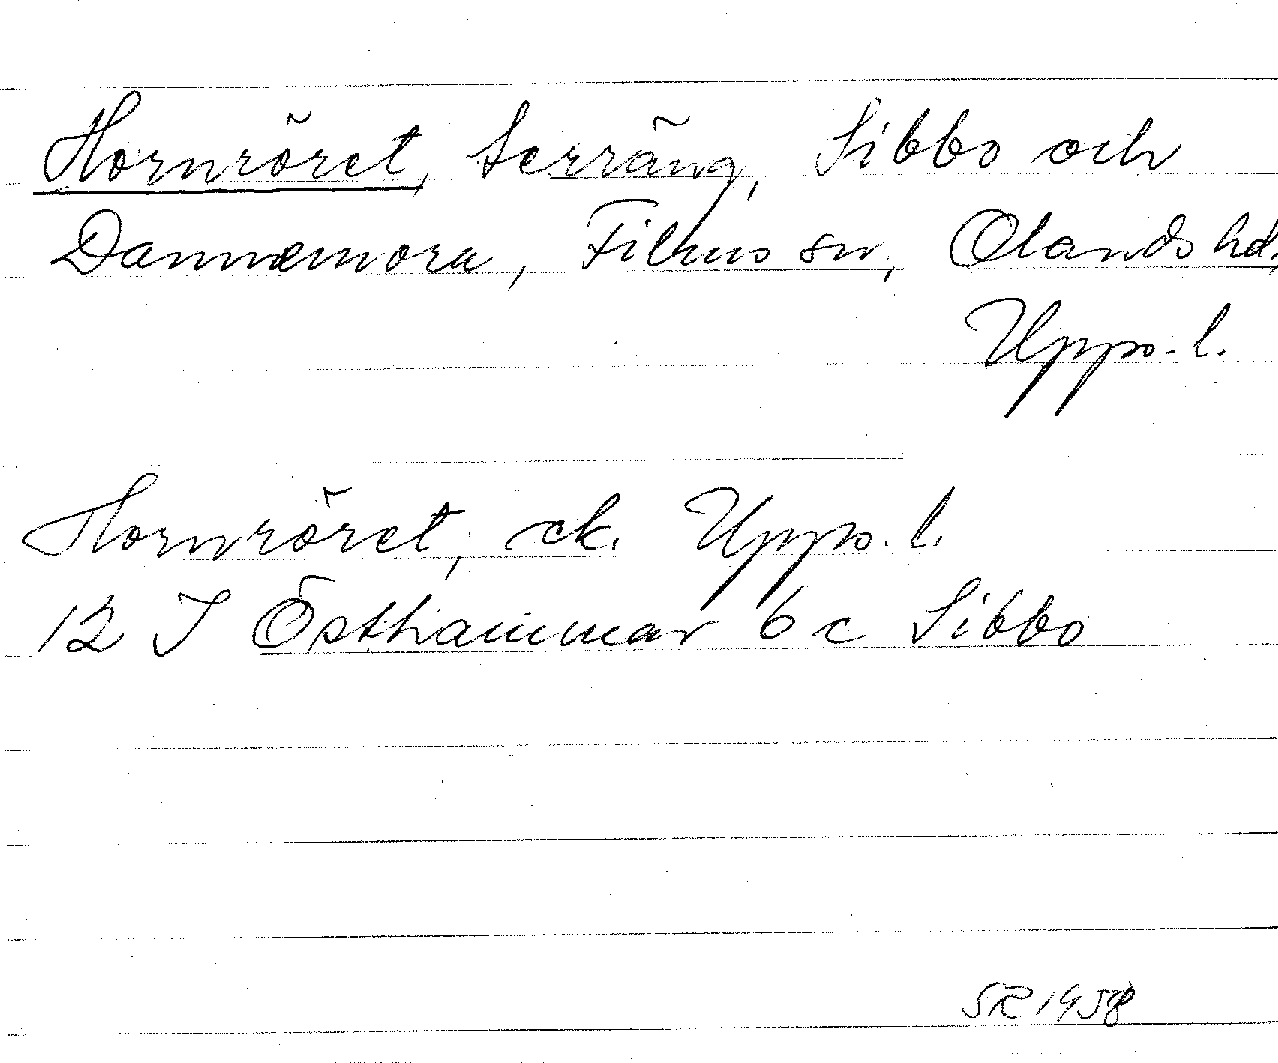 Hornröret, terräng, Sibbo och
Dannemora, Films sn, Olands hd,
Upps. l.
Hornröret, ek. Upps. l.
12 I Östhammar 6 c Sibbo
SR 1958